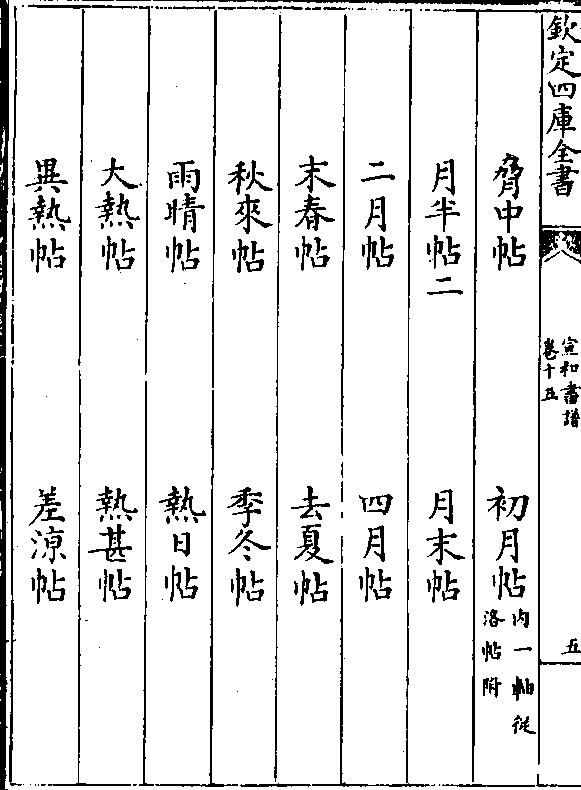 欽定四庫全書
宣和書譜
卷十五
五
脅中帖　初月帖 内一帖從洛帖附
月半帖二　月末帖
二月帖　四月帖
末春帖　去夏帖
秋來帖　季冬帖
雨晴帖　熱日帖
大熱帖　熱甚帖
異熱帖　差涼帖